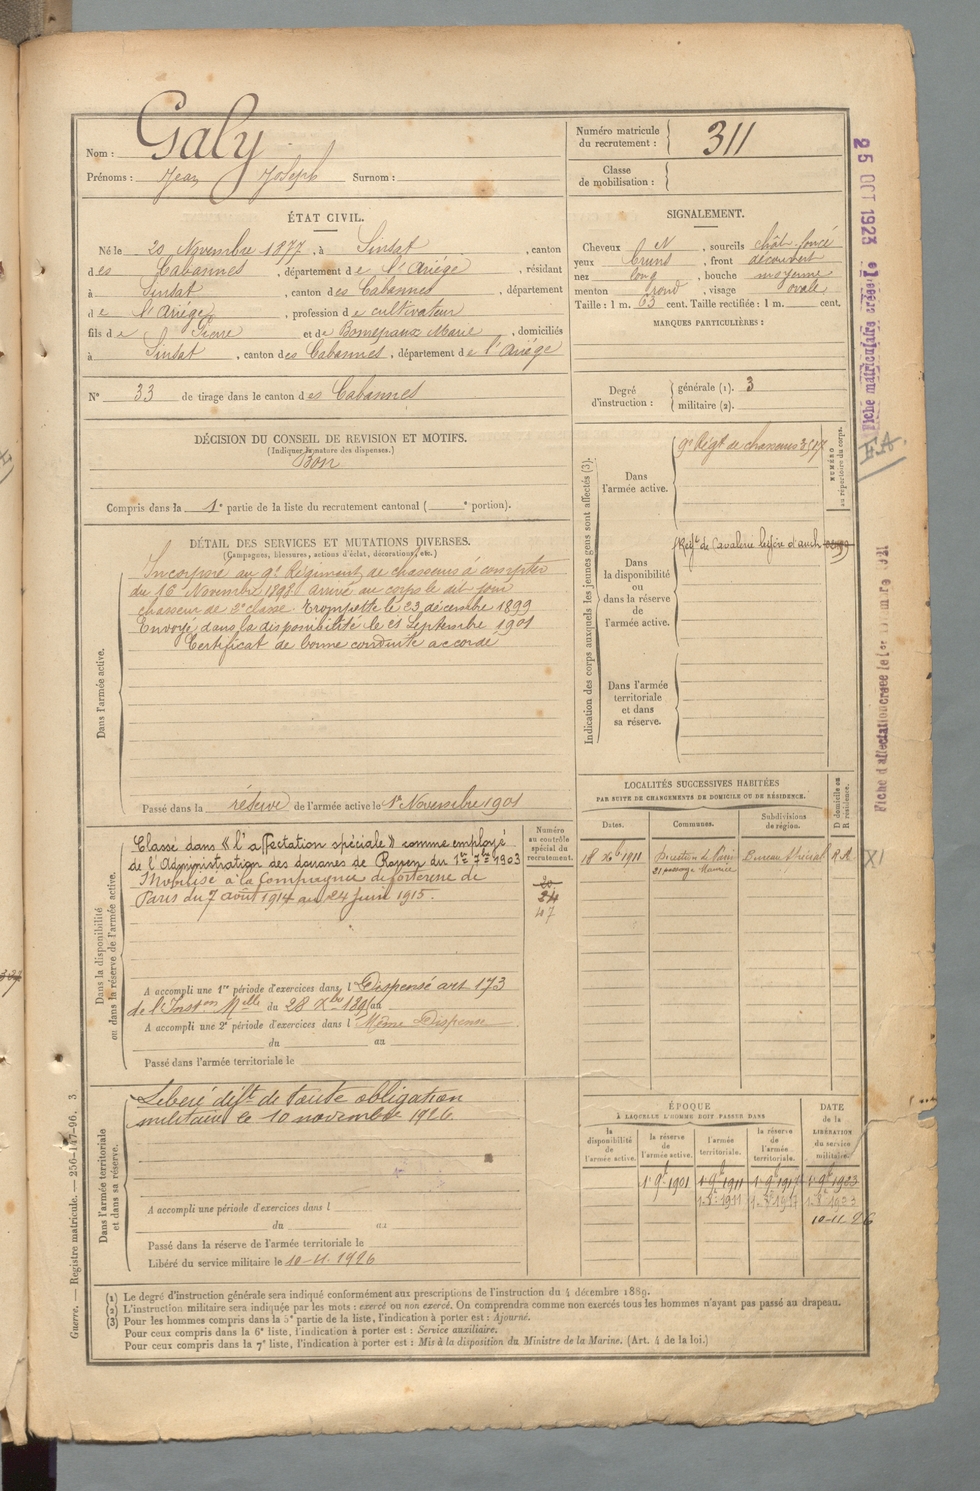 Nom : Galy
Prénoms : Jean Joseph Surnom :
Numéro matricule du recrutement : 311
Classe de mobilisation :
ÉTAT CIVIL.
Né le 20 Novembre 1877, à Sinsat, canton
des Cabannes, département de l'Ariége, résidant
à Sinsat, canton des Cabannes, département
de l'Ariége, profession de cultivateur
fils de Pierre et de Marie, domiciliés
à Sinsat, canton des Cabannes, département de l'Ariége
N° 33 de tirage dans le canton des Cabannes
SIGNALEMENT.
Cheveux N, sourcils chât. foncé
yeux bruns, front découvert
nez long, bouche moyenne
menton rond, visage ovale
Taille : 1 m. 63 cent. Taille rectifiée : 1 m. cent.
MARQUES PARTICULIÈRES :
Degré d'instruction : générale (1). 3
militaire (2).
DÉCISION DU CONSEIL DE REVISION ET MOTIFS.
(Indiquer la nature des dispenses.)
Bon
Compris dans la 1e partie de la liste du recrutement cantonal ( e portion).
DÉTAIL DES SERVICES ET MUTATIONS DIVERSES.
(Campagnes, blessures, actions d'éclat, décorations, etc.)
Dans l'armée active.
Incorporé au 9e Régiment de chasseurs à compter
du 16 Novembre 1898 arrivé au corps le dit jour
chasseur de 2e classe. Trompette le 23 décembre 1899
Envoyé dans la disponibilité le 21 Septembre 1901
Certificat de bonne conduite accordé
Passé dans la réserve de l'armée active le 1er Novembre 1901
Indication des corps auxquels les jeunes gens sont affectés (3).
NUMÉRO au répertoire du corps.
Dans l'armée active.
9e Régt de chasseurs
Dans la disponibilité ou dans la réserve de l'armée active.
Régt de Cavalerie légère d'auch
Dans l'armée territoriale et dans sa réserve.
Dans la disponibilité ou dans la réserve de l'armée active.
Classé dans "l'affectation spéciale" comme employé
de l'Administration des douanes de Rouen du 1er 7bre 1903
Mobilisé à la Compagnie de forteresse de
Paris du 7 août 1914 au 24 Juin 1915.
Numéro au contrôle spécial du recrutement.
20
24
47
A accompli une 1re période d'exercices dans l Dispensé art 173
de l'Inston Mlle du 28 Xbre 1895 au
A accompli une 2e période d'exercices dans l Même Dispense
du au
Passé dans l'armée territoriale le
LOCALITÉS SUCCESSIVES HABITÉES
PAR SUITE DE CHANGEMENTS DE DOMICILE OU DE RÉSIDENCE.
Dates. Communes. Subdivisions de région. D domicile ou R résidence.
18 Xbre 1911 Direction de Paris Bureau Spécial R.A.
21 passage Maurice
XI
Dans l'armée territoriale et dans sa réserve.
Libéré déft de toute obligation
militaire le 10 novembre 1926
A accompli une période d'exercices dans l
du au
Passé dans la réserve de l'armée territoriale le
Libéré du service militaire le 10-11-1926
ÉPOQUE
À LAQUELLE L'HOMME DOIT PASSER DANS
la disponibilité de l'armée active. la réserve de l'armée active. l'armée territoriale. la réserve de l'armée territoriale.
DATE de la LIBÉRATION du service militaire.
1er 9bre 1901 1er 9bre 1911 1er 9bre 1917 1er 9bre 1923
10-11-26
(1) Le degré d'instruction générale sera indiqué conformément aux prescriptions de l'instruction du 4 décembre 1889.
(2) L'instruction militaire sera indiquée par les mots : exercé ou non exercé. On comprendra comme non exercés tous les hommes n'ayant pas passé au drapeau.
(3) Pour les hommes compris dans la 5e partie de la liste, l'indication à porter est : Ajourné.
Pour ceux compris dans la 6e liste, l'indication à porter est : Service auxiliaire.
Pour ceux compris dans la 7e liste, l'indication à porter est : Mis à la disposition du Ministre de la Marine. (Art. 4 de la loi.)
Guerre. — Registre matricule. — 256-147-96. 3
25 OCT 1923
Fiche matriculaire créée le
Fiche d'affectation créée le